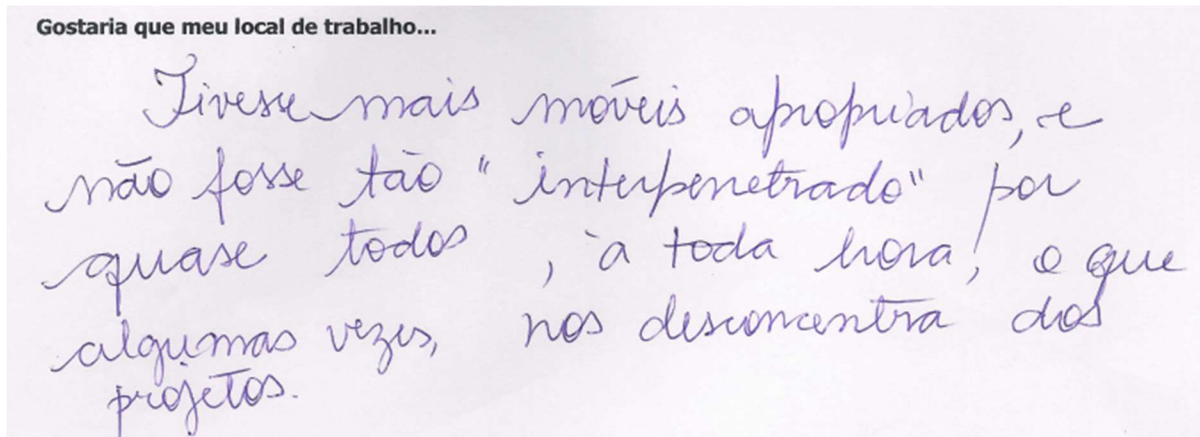 Gostaria que meu local de trabalho...
Tivesse mais móveis apropriados, e
não fosse tão "interpenetrado" por
quase todos, à toda hora! o que
algumas vezes, nos desconcentra dos
projetos.